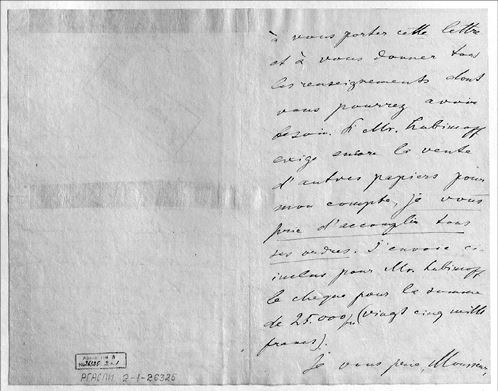 à vous porter cette lettre
et à vous donner tous
les renseignements dont
vous pourrez avoir
besoin. Si Mr. Lubimoff
exige encore la vente
d'autres papiers pour
mon compte, je vous
prie d'accomplir tous
ses ordres. J'envoie ci-
inclus pour Mr. Lubimoff
le chèque pour la somme
de 25.000 frs (vingt cinq mille
francs).
Je vous prie, Monsieur,
2-1
РГАЛИ 2-1-26325